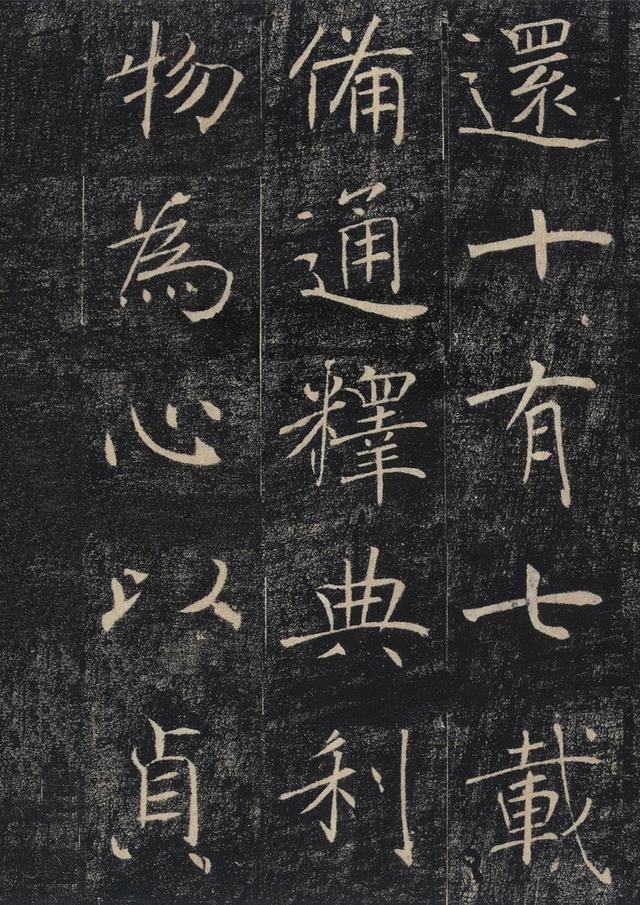 還十有七載
備通釋典利
物為心以貞